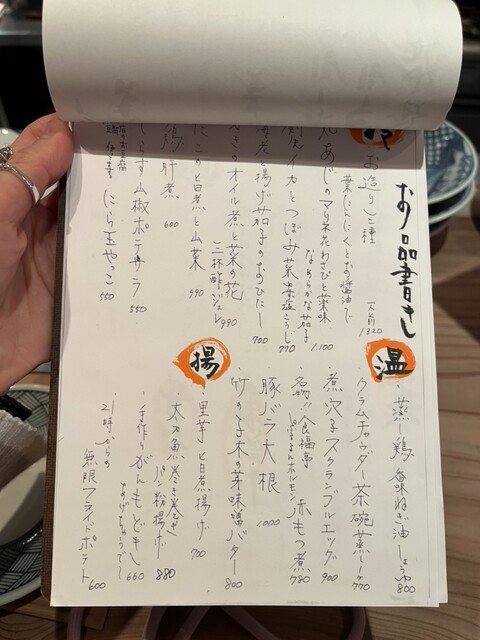 お品書き
冷
お造り三種
葉にんにくとお醤油で
一人前 1320
あじのマリネ 花わさびと薬味
なめらかな茄子
1100
イカとつぼみ菜 塩こうじ 770
海老と揚げ茄子のおひたし 700
きのオイル煮と菜の花
三杯酢ジュレ 990
たこのと白煮と山菜 990
鶏肝煮 600
しらす山椒ポテサラ 550
にら玉やっこ 550
温
・蒸し鶏 香味ねぎ油しょうゆ 800
・クラムチャウダー茶碗蒸し 770
・煮穴子スクランブルエッグ 900
・名物!!食福亭 赤もつ煮 780
ぷるまんホルモン
豚バラ大根 1000
・竹の子木の芽味噌バター 800
揚
・里芋と白煮揚げ 700
太刀魚巻き巻き
パン粉揚げ 880
・手作りがんもどき
あげちゃうでし 660
・21時からの
無限フライドポテト 600